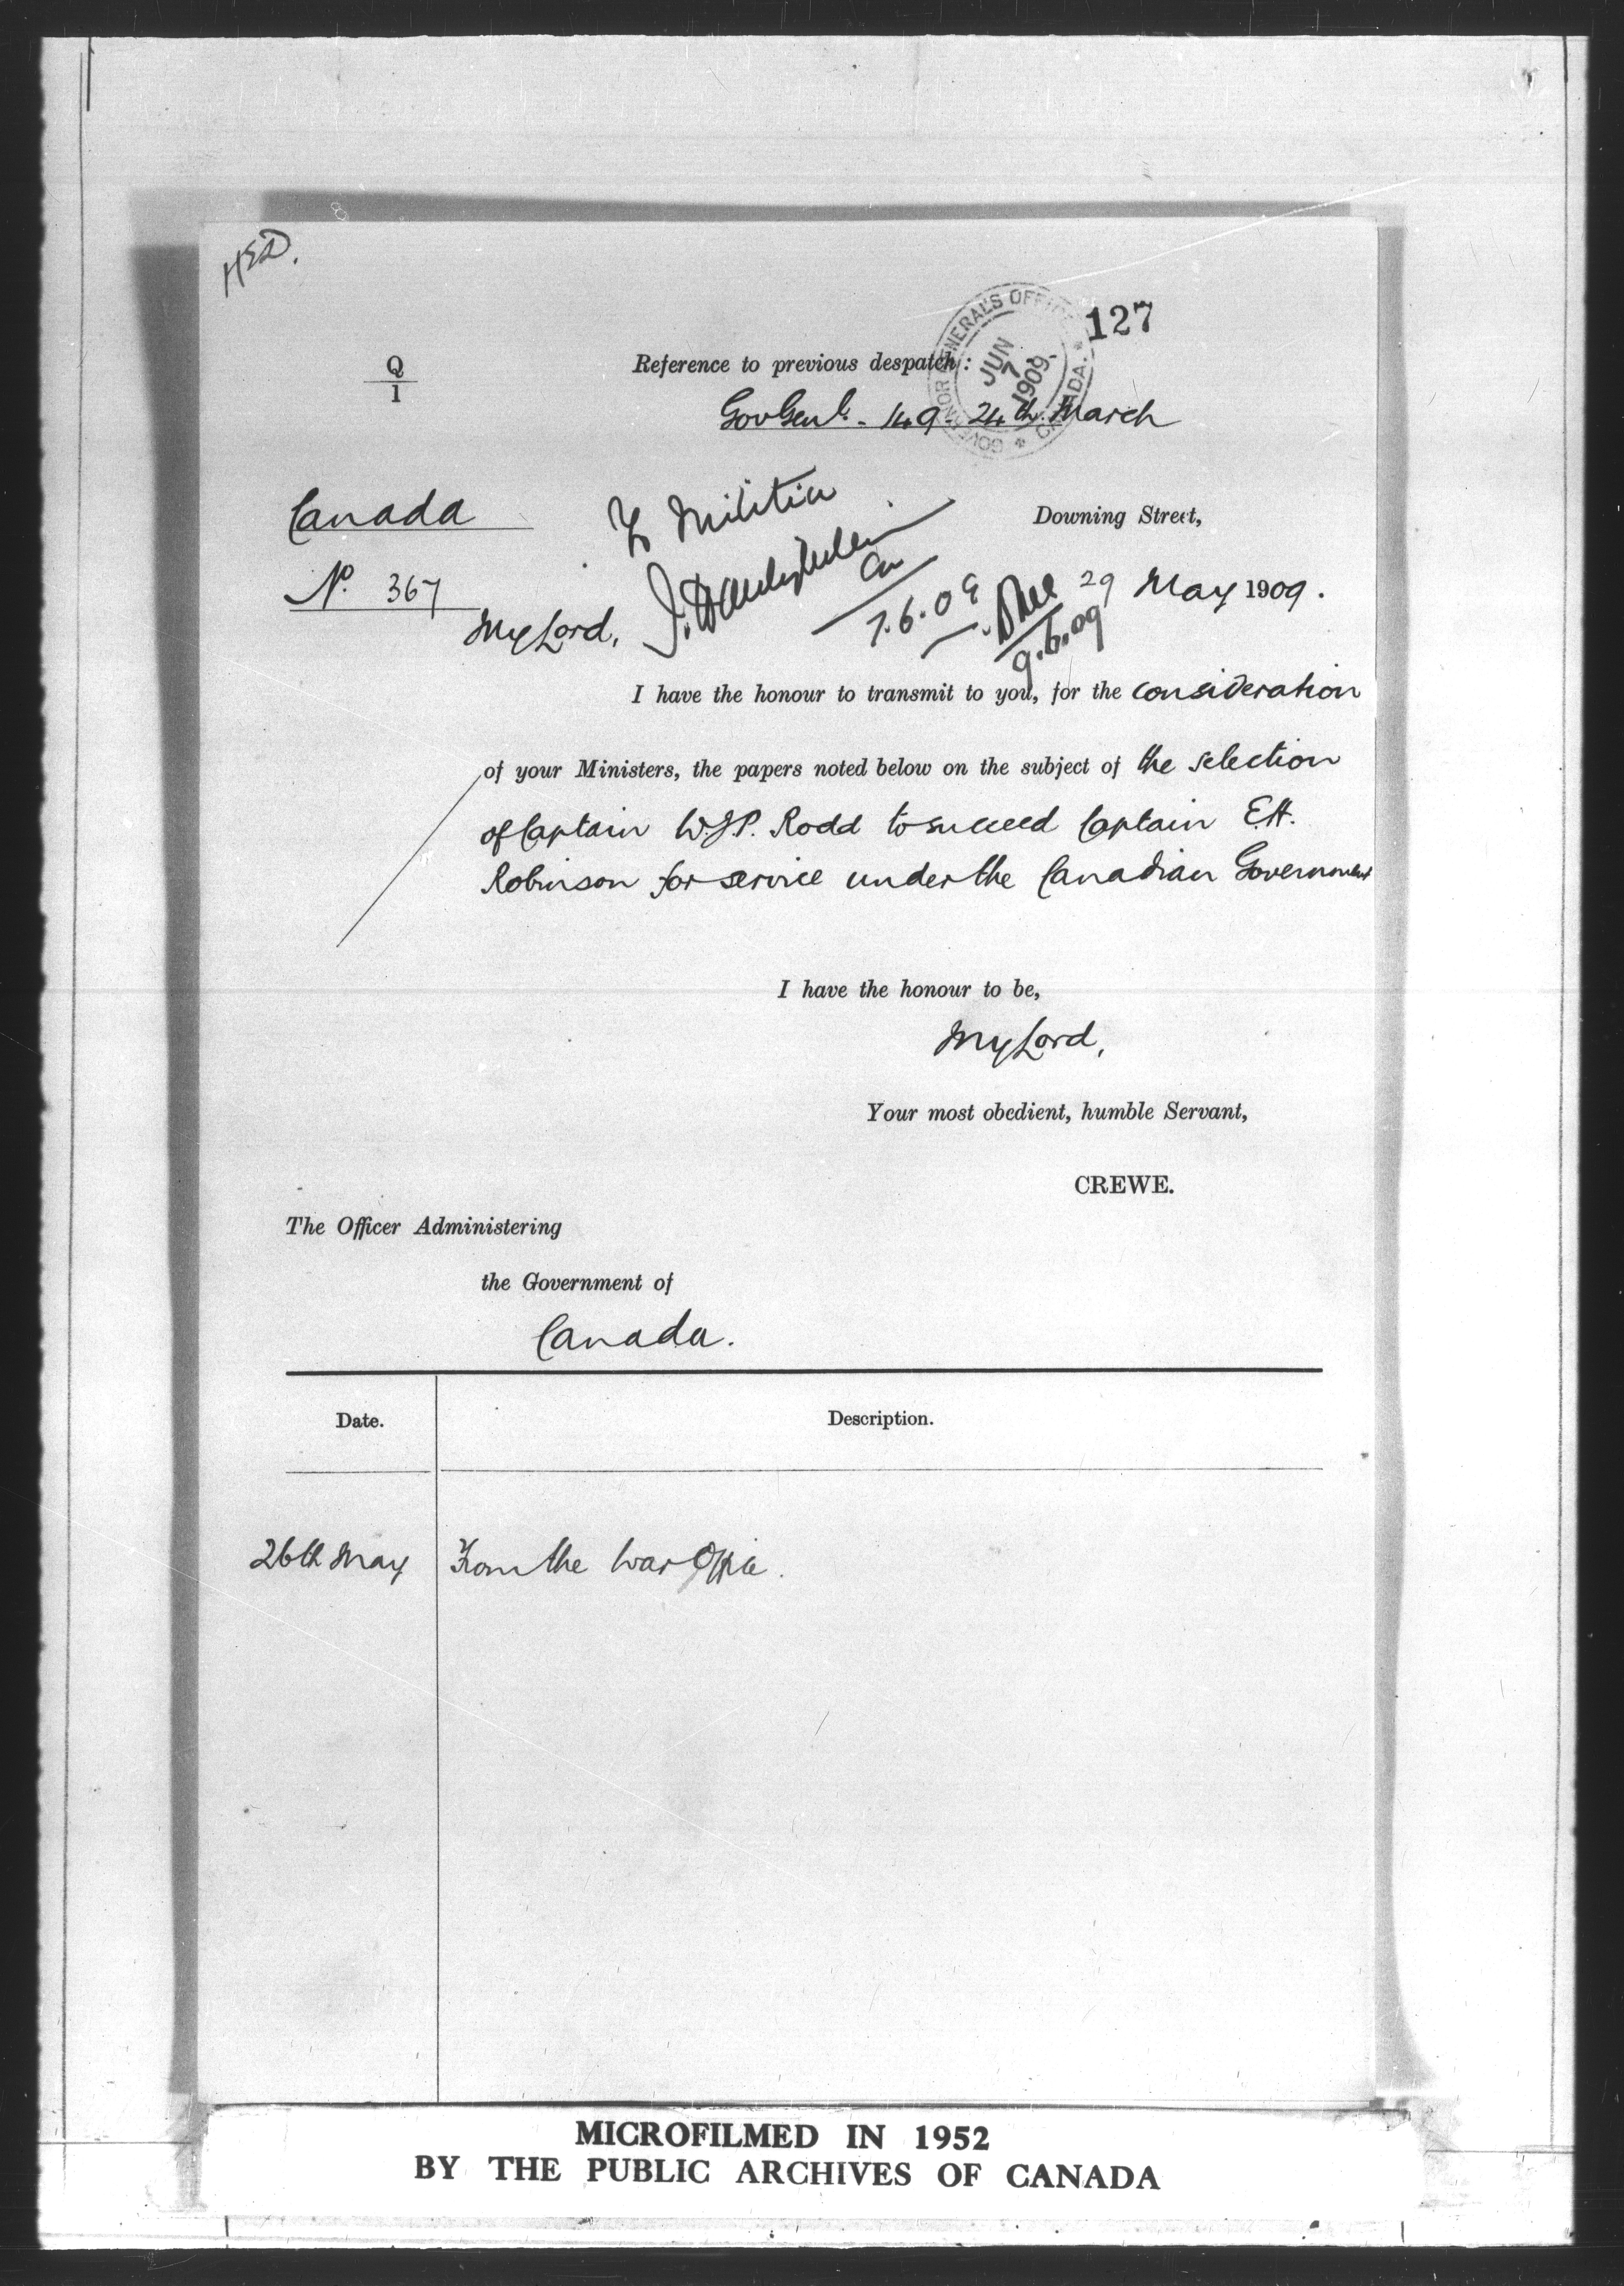 HED.
127
GOVERNOR GENERAL'S OFFICE * CANADA. *
JUN 7 1909.
Q
1
Reference to previous despatch:
GovGenl. 149 24th March
Canada
To Militia
Downing Street,
No. 367
7.6.09
29 May 1909.
9.6.09
My Lord,
I have the honour to transmit to you, for the consideration
of your Ministers, the papers noted below on the subject of the selection
of Captain W.J.P. Rodd to succeed Captain E.H.
Robinson for service under the Canadian Government
I have the honour to be,
My Lord,
Your most obedient, humble Servant,
CREWE.
The Officer Administering
the Government of
Canada.
Date.
Description.
26th May
From the War Office.
MICROFILMED IN 1952
BY THE PUBLIC ARCHIVES OF CANADA